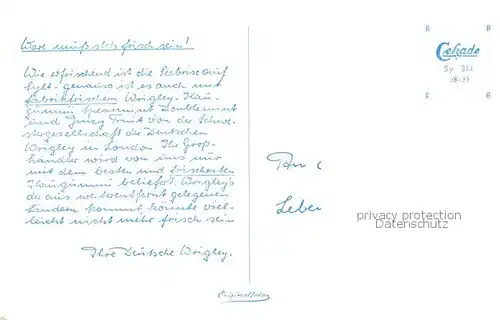 Ware muß stets frisch sein!
Wie erfrischend ist die Seebrise auf
Sylt - genauso ist es auch mit
fabrikfrischem Wrigley-Kau-
gummi Spearmint, Doublemint
und Juicy Fruit von der Schwe-
stergesellschaft der Deutschen
Wrigley in London. Ihr Groß-
händler wird von uns nur
mit dem besten und frischesten
Kaugummi beliefert. Wrigleys
der aus weitentfernt gelegenen
Ländern kommt, könnte viel-
leicht nicht mehr frisch sein
Ihre Deutsche Wrigley.
Originalfoto
Cekade
Sy. 314
An
Lieber
privacy protection
Datenschutz